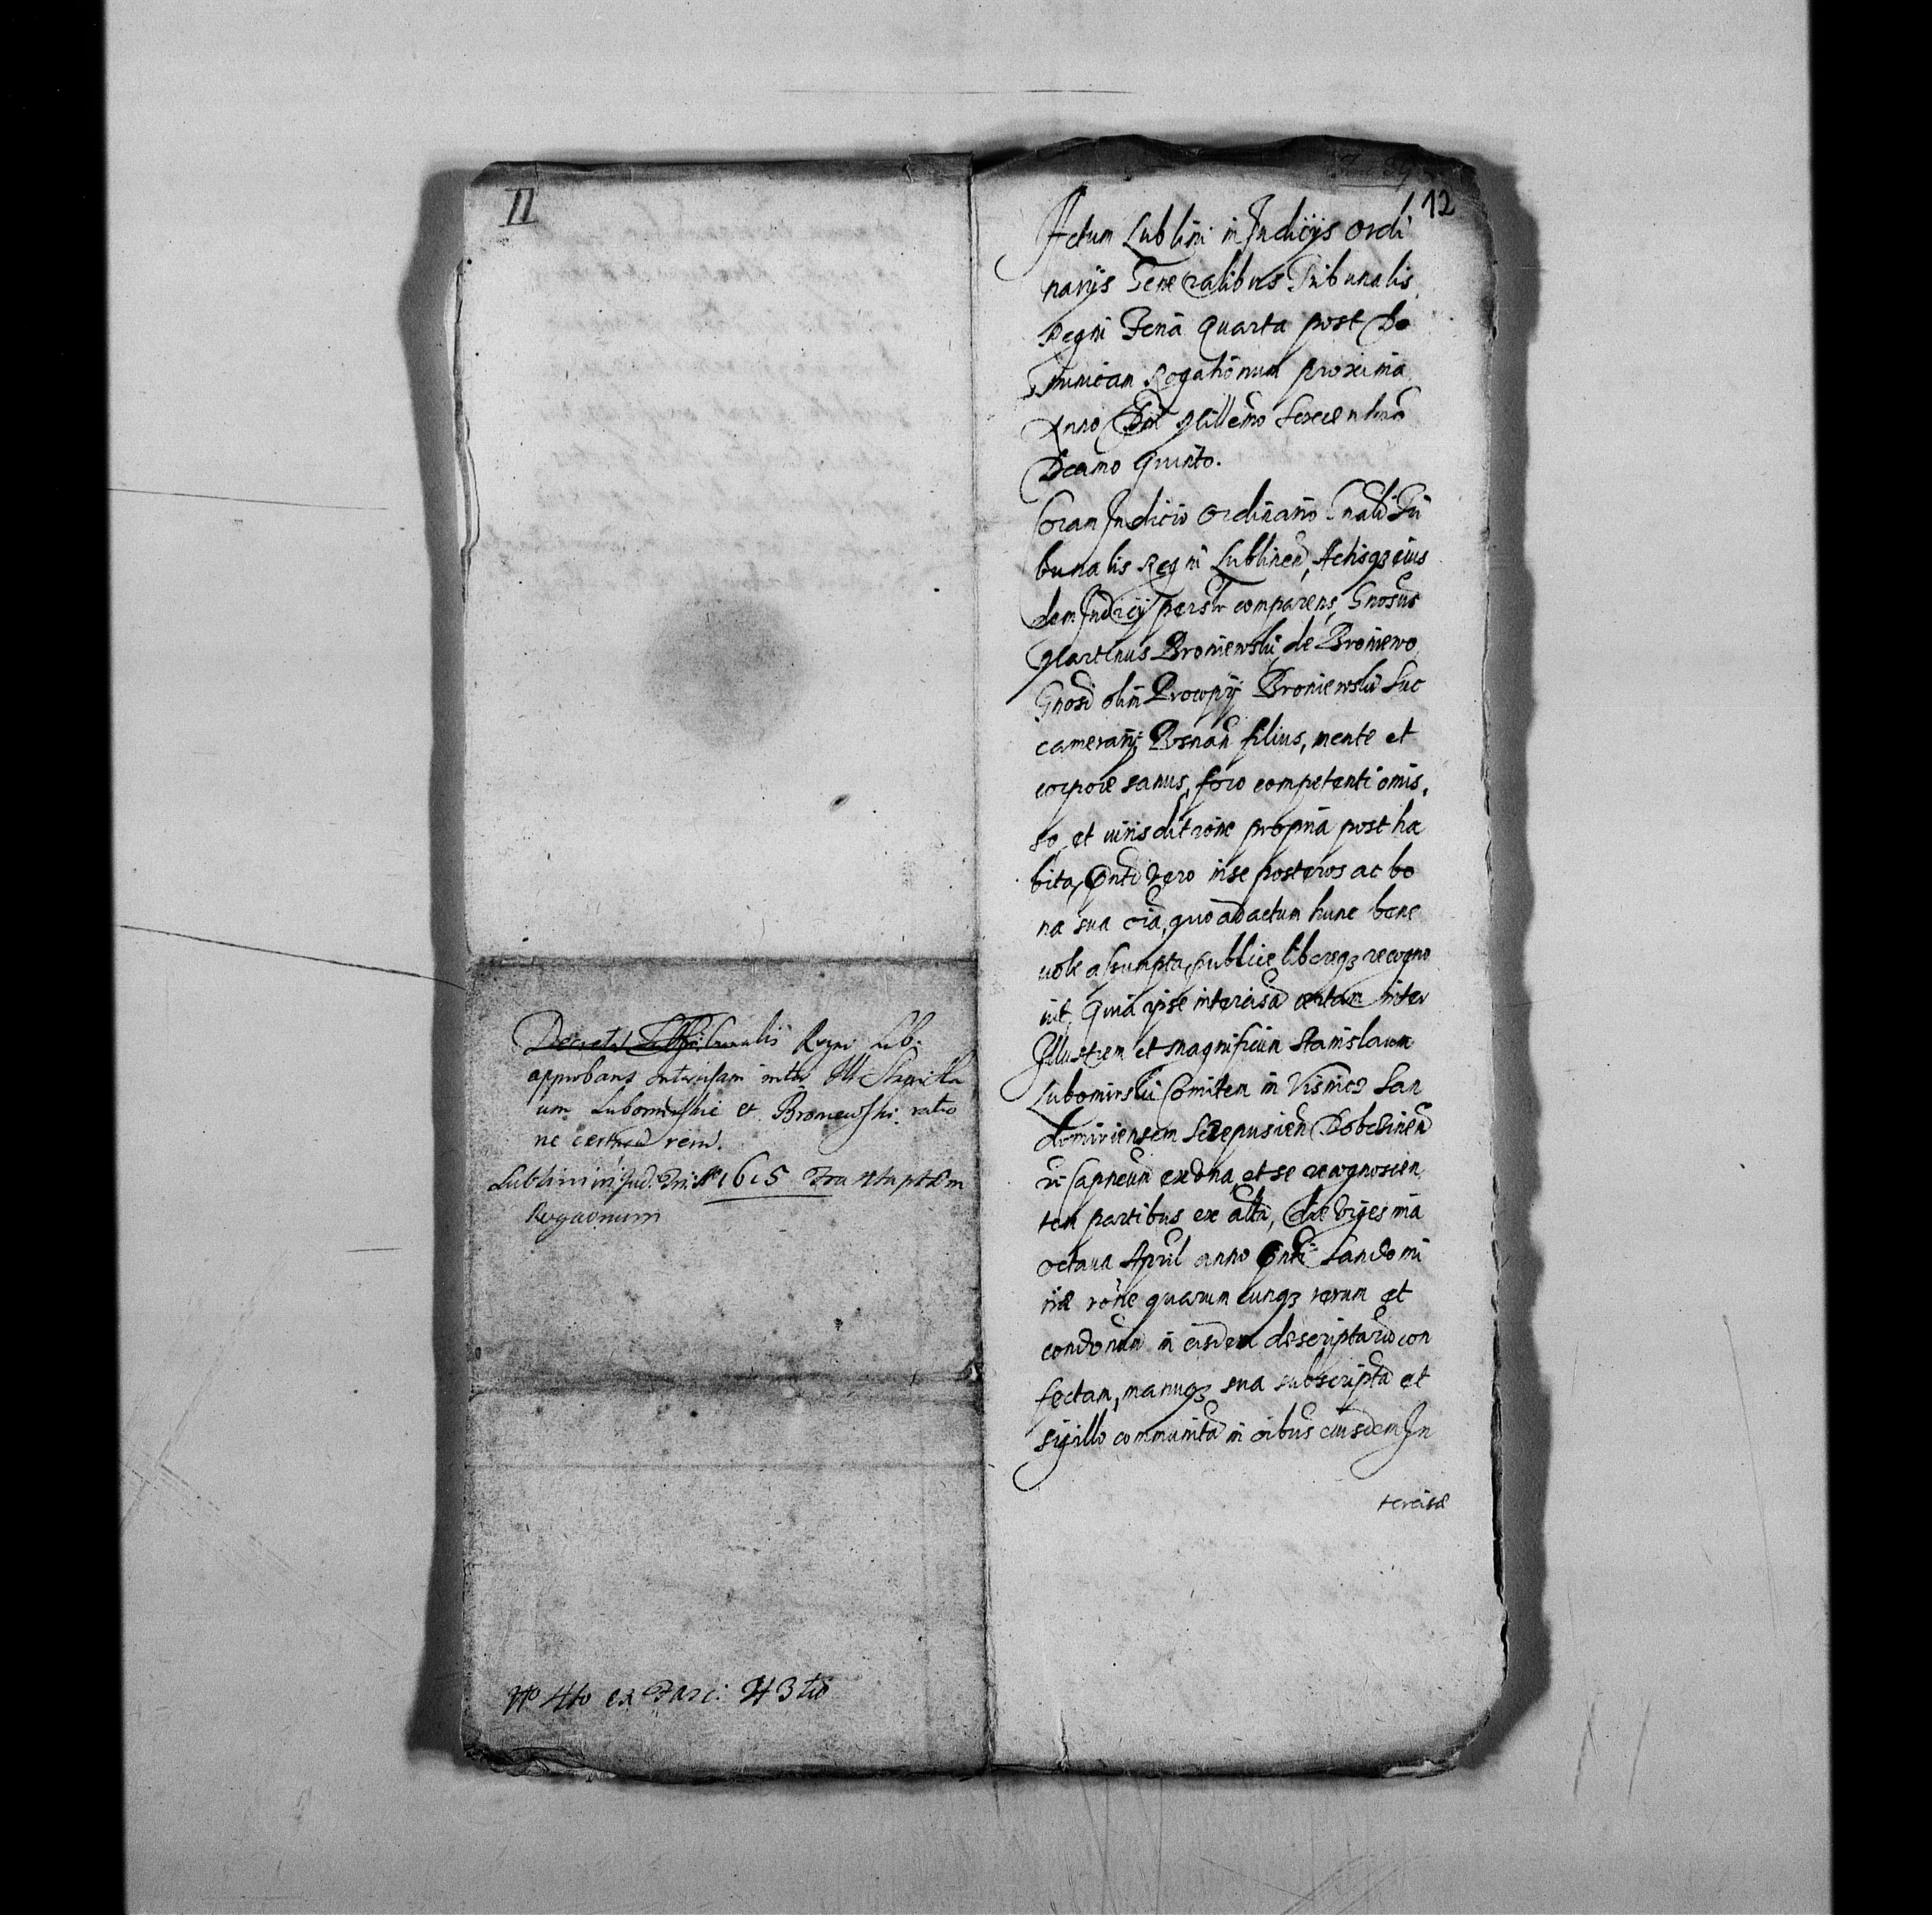 II
Decretu Tribunalis Regni Lub:
approbans Intercisam inter Ill Stanisla
um Lubomirskie et Broniewski ratio
ne certar̃ rerũ.
Lublini in Jud: Trib: Aº 1615 Fra 4ta pt Dm
Rogaonum
Nº 4to ex Fasc: N 3tio
12
Actum Lublini in Judicijs Ordi
narijs Generalibus Tribunalis
Regni Feria Quarta post Do
minicam Rogationum proxima
Anno Dni Millemo Sexcentmo
Decimo Quinto.
Coram Judicio Ordinario Gnali Tri
bunalis Regni Lublinen, Actisqꝫ eius
dem Judicij persr comparens, Gnosus
Martinus Broniewski de Broniewo,
Gnosi olim Procopij Broniewski Suc
camerarij Posnan filius, mente et
corpore sanus, foro competenti omis,
so, et iurisditione propria post ha
bita, Pnti vero in se posteros ac bo
na sua oia, quo ad actum hunc bene
uole assumpta, publice libereqꝫ recogno
uit, Quia ipse intercisa certam inter
Illustrem et Magnificum Stanislaum
Lubomirski Comitem in Visnicz San
domiriensem Scepusien Dobczinen
Capneum ex vna, et se recognoscen
tem partibus ex altra, die vigesima
octaua April anno Pnti Sandomi
riæ rõne quarumcunqꝫ rerum et
condonum in eisdem descriptarũ con
fectam, manuqꝫ sua subscripta et
sigillo communita in oibus eiusdem In
tercisæ